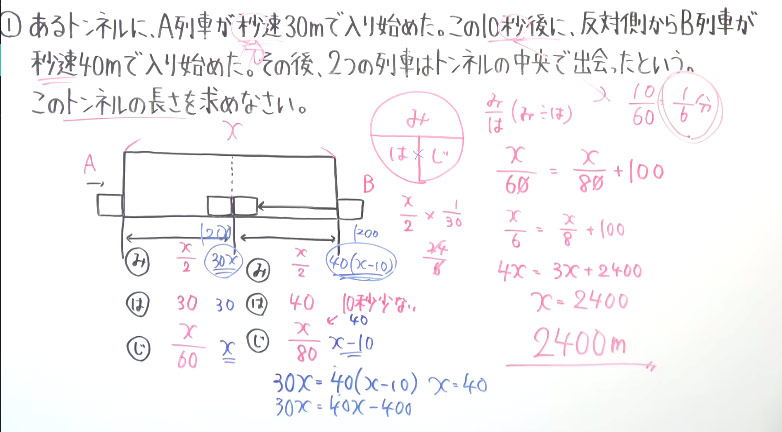 ① あるトンネルに、A列車が秒速30mで入り始めた。この10秒後に、反対側からB列車が
秒速40mで入り始めた。その後、2つの列車はトンネルの中央で出会ったという。
このトンネルの長さを求めなさい。
x
A
B
み
は×じ
み/は (み÷は)
10/60 1/6分
x/60 = x/80 + 100
x/6 = x/8 + 100
4x = 3x + 2400
x = 2400
2400m
x/2 × 1/30
1200
1200
み x/2 30x み x/2 40(x-10)
は 30 30 は 40 10秒少ない
じ x/60 x じ x/80 x-10
40
30x = 40(x-10) x = 40
30x = 40x - 400